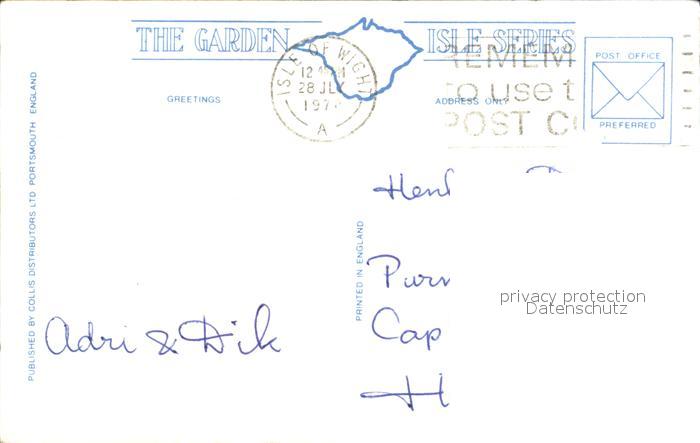 THE GARDEN ISLE SERIES
ISLE OF WIGHT
28 JLY
A
REMEM
to use t
POST CO
POST OFFICE
PREFERRED
GREETINGS
ADDRESS ONLY
PUBLISHED BY COLLIS DISTRIBUTORS LTD PORTSMOUTH ENGLAND
PRINTED IN ENGLAND
Adri & Dik
Cap
H
privacy protection
Datenschutz